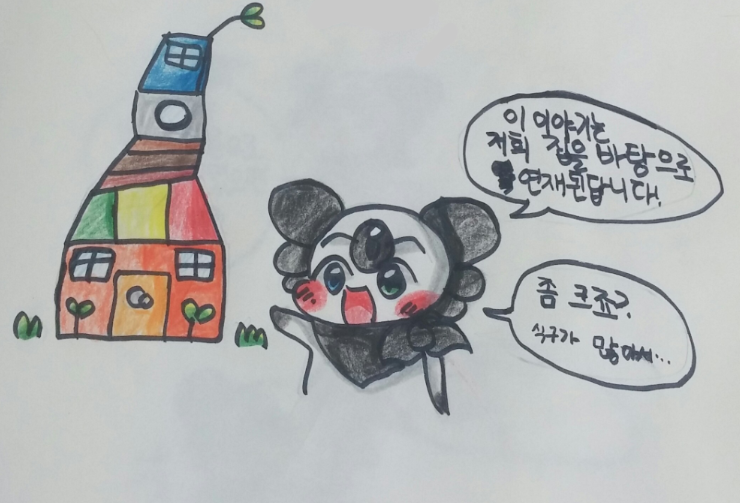 이 이야기는
저희 집을 바탕으로
연재된답니다.
좀 크죠?
식구가 많아서...